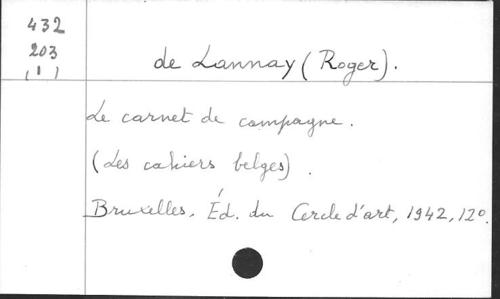 432
203
(1)
de Lannay (Roger).
Le carnet de campagne.
(Les cahiers belges).
Bruxelles, Éd. du Cercle d'art, 1942, 12°.